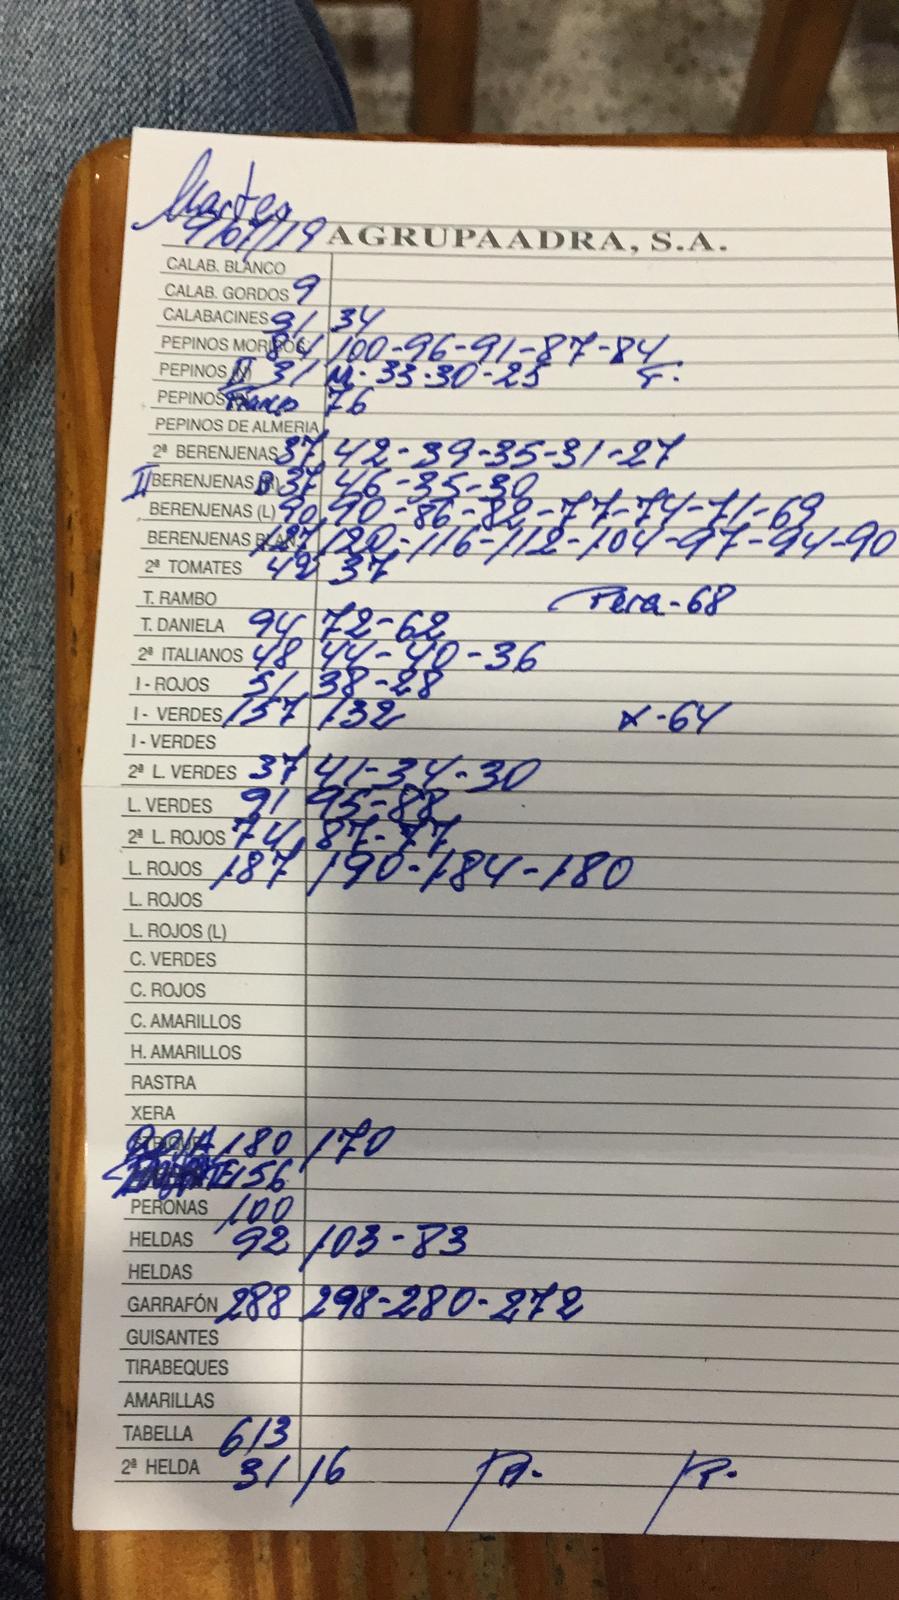 Martes
9/07/19 AGRUPAADRA, S.A.
CALAB. BLANCO
CALAB. GORDOS 9
CALABACINES 91 34
PEPINOS 84 100-96-91-87-84
PEPINOS II 31 M. 33-30-25 F.
PEPINOS 76
PEPINOS DE ALMERIA
2ª BERENJENAS 37 42-39-35-31-27
II BERENJENAS B 37 46-35-30
BERENJENAS (L) 90 90-86-82-77-74-71-69
BERENJENAS 127 120-116-112-104-97-94-90
2ª TOMATES 42 37
T. RAMBO Pera-68
T. DANIELA 94 72-62
2ª ITALIANOS 48 44-40-36
I - ROJOS 51 38-28
I - VERDES 157 132 x-64
I - VERDES
2ª L. VERDES 37 41-34-30
L. VERDES 91 95-88
2ª L. ROJOS 74 87-77
L. ROJOS 187 190-184-180
L. ROJOS
L. ROJOS (L)
C. VERDES
C. ROJOS
C. AMARILLOS
H. AMARILLOS
RASTRA
XERA
180 170
156
PERONAS 100
HELDAS 92 103-83
HELDAS
GARRAFÓN 288 298-280-272
GUISANTES
TIRABEQUES
AMARILLAS
TABELLA 613
2ª HELDA 31 16